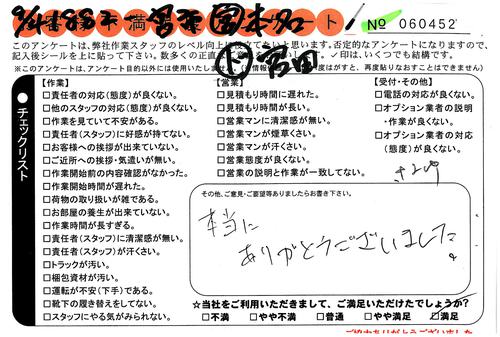 お客様不満アンケート!
No 060452
このアンケートは、弊社作業スタッフのレベル向上に役立てたいと思います。否定的なアンケートになりますので、
記入後シールを上に貼って下さい。
✓印は、いくつでも結構です。
※このアンケートは、アンケート目的以外には使用いたしません
再度貼りなおすことはできません)
チェックリスト
【作業】
□責任者の対応(態度)が良くない。
□他のスタッフの対応(態度)が良くない。
□作業を見ていて不安がある。
□責任者(スタッフ)に好感が持てない。
□お客様への挨拶が出来ていない。
□ご近所への挨拶・気遣いが無い。
□作業開始前の内容確認がなかった。
□作業開始時間が遅れた。
□荷物の取り扱いが雑である。
□お部屋の養生が出来ていない。
□作業時間が長すぎる。
□責任者(スタッフ)に清潔感が無い。
□責任者(スタッフ)が汗くさい。
□トラックが汚い。
□梱包資材が汚い。
□運転が不安(下手)である。
□靴下の履き替えをしてない。
□スタッフにやる気がみられない。
【営業】
□見積もり時間に遅れた。
□見積もり時間が長い。
□営業マンに清潔感が無い。
□営業マンが煙草くさい。
□営業マンが汗くさい。
□営業態度が良くない。
□営業の説明と作業が一致してない。
【受付・その他】
□電話の対応が良くない。
□オプション業者の説明
・作業が良くない。
□オプション業者の対応
(態度)が良くない。
その他、ご意見・ご要望等ありましたらお書き下さい。
本当に
ありがとうございました。
☆当社をご利用いただきまして、ご満足いただけたでしょうか?
□不満 □やや不満 □普通 □やや満足 ☑満足
ご協力ありがとうございました